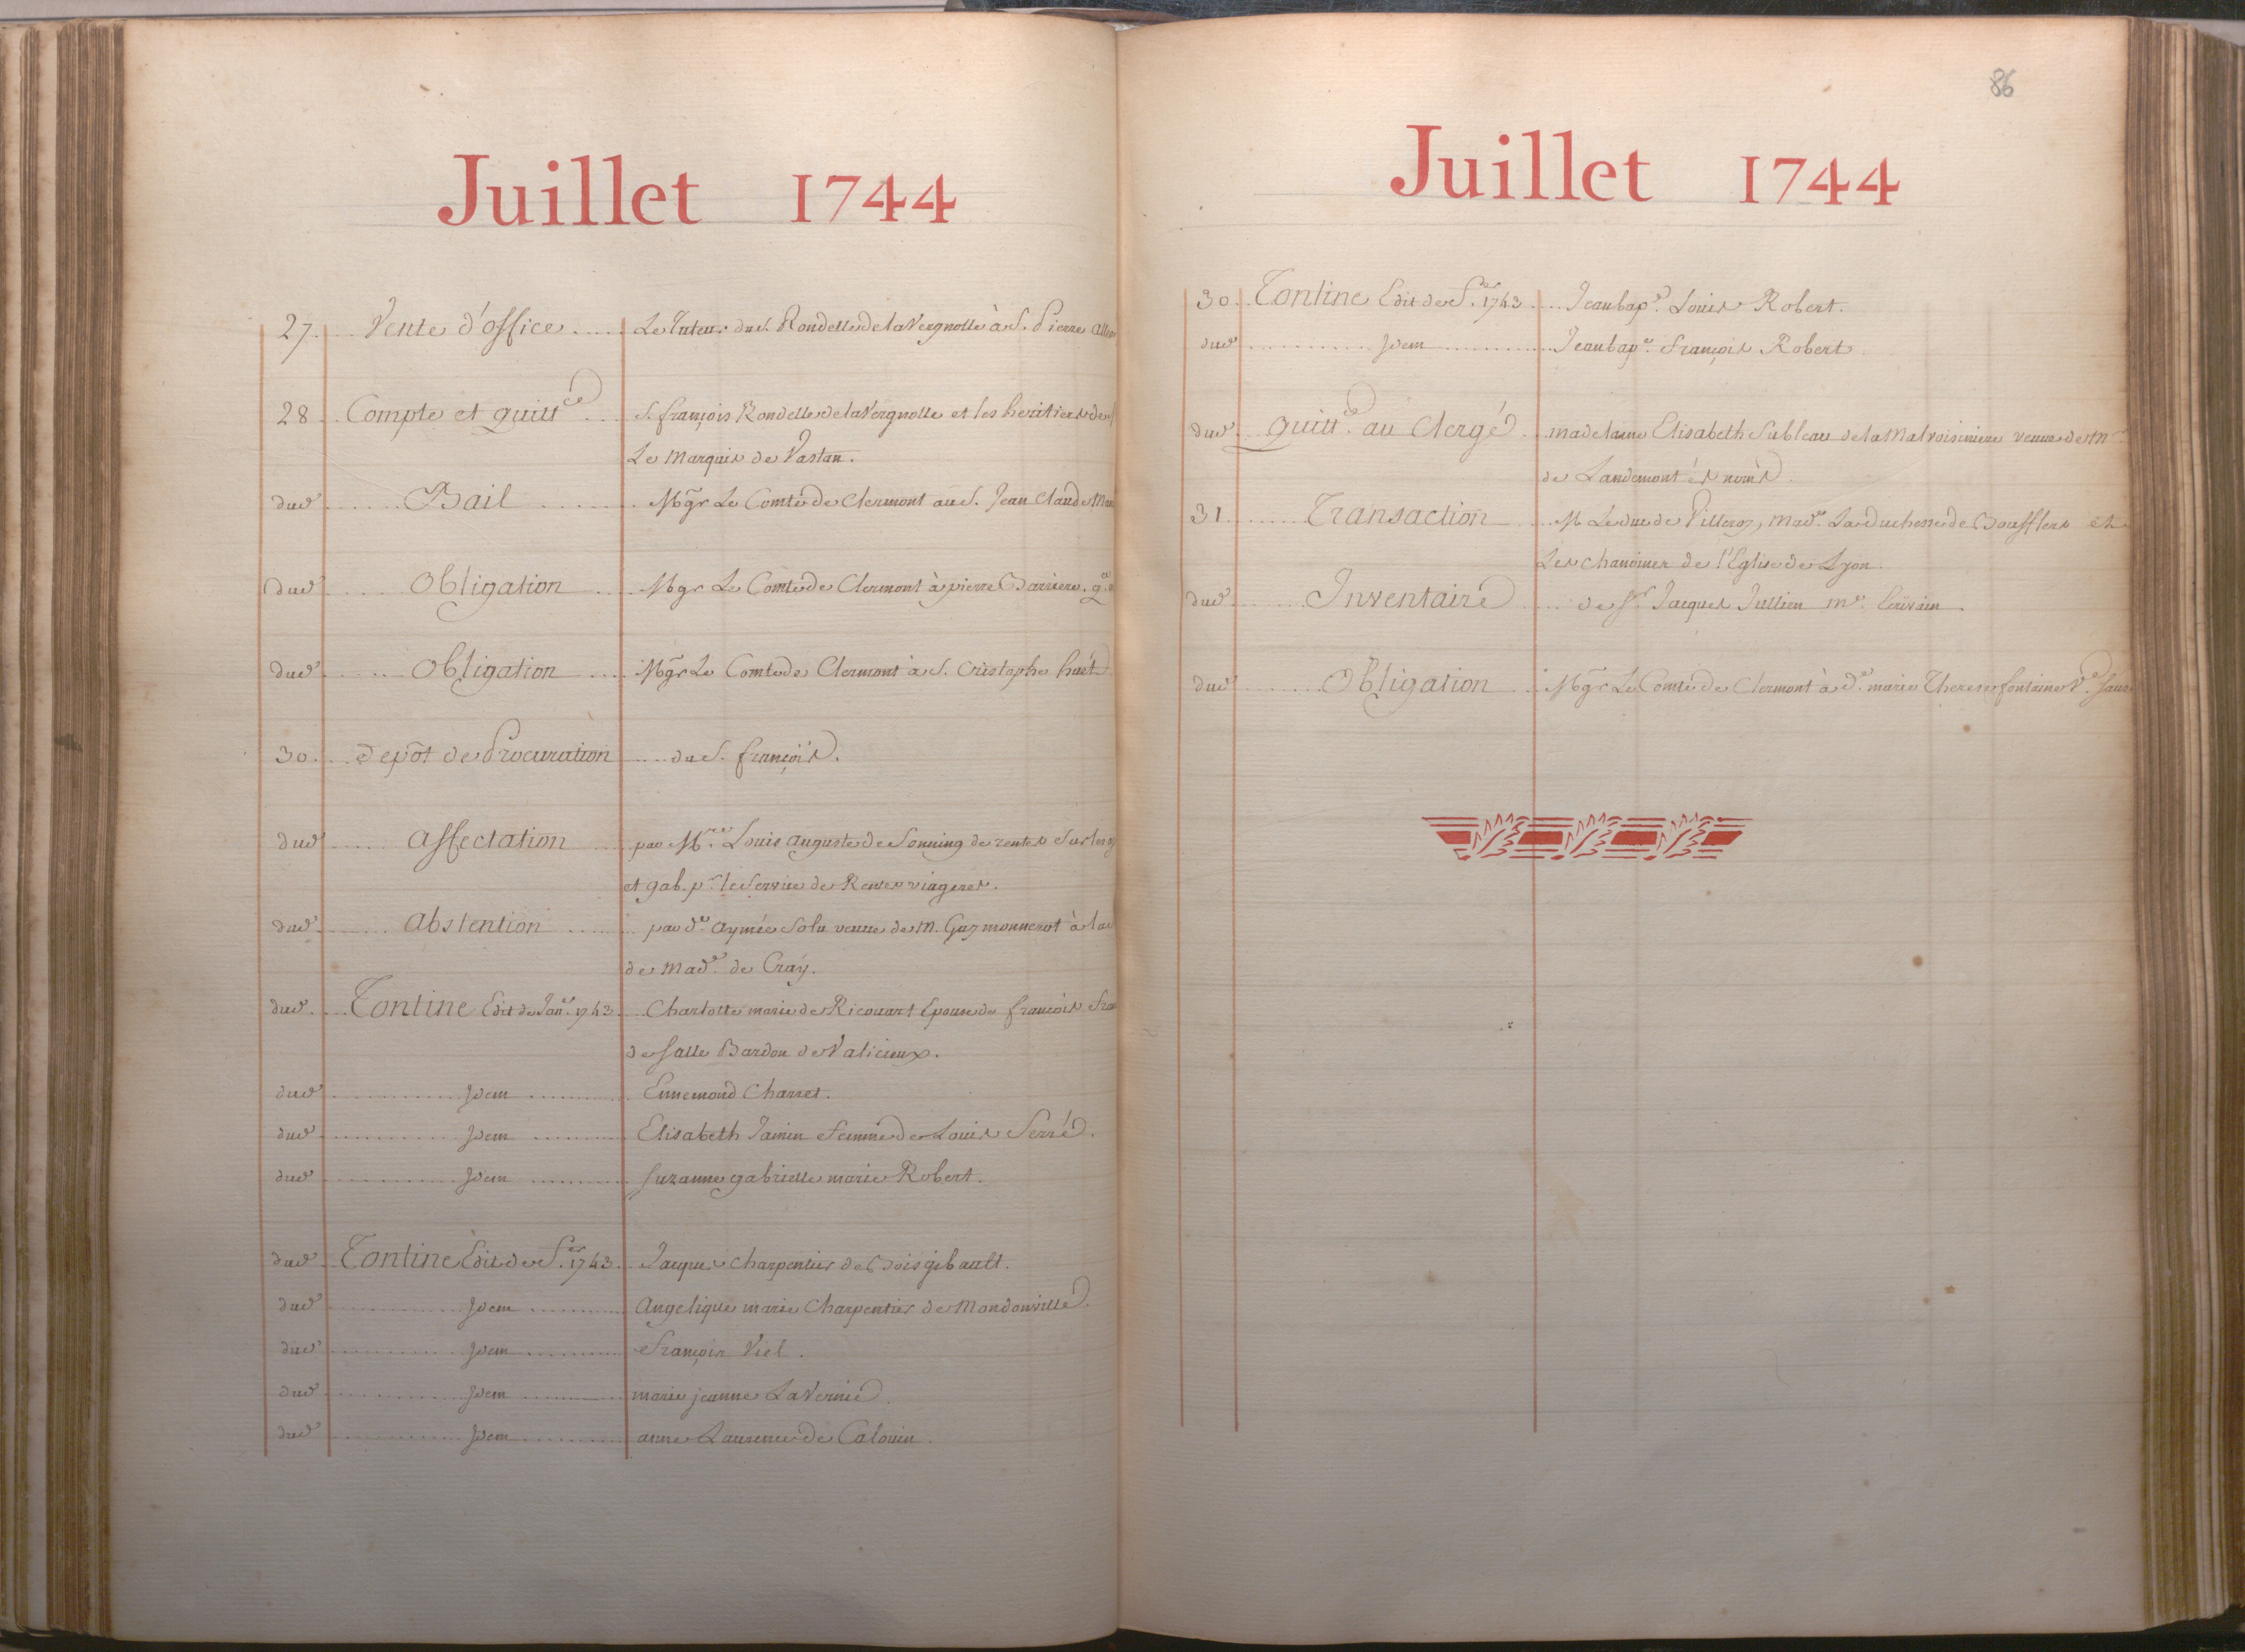 Juillet 1744
27. Vente d'office Le Tuteur du S. Rondelle de la Vergnolle à S. Pierre
28 Compte et quitt.ce S. françois Rondelle de la Vergnolle et les heritiers de
Le Marquis de Vastan.
dud Bail Mgr Le Comte de Clermont au S. Jean Claude
dud Obligation Mgr Le Comte de Clermont à pierre Barriere.
dud Obligation Mgr Le Comte de Clermont à S. Cristophe huët
30. depôt de Procuration du S. françois.
dud affectation par M.re Louis auguste de Sonning de rentes Sur les
et gab. p.r le Service de Rentes viageres.
dud abstention par d.e aymée Solu veuve de M. Guy monnerot à la
de mad.e de Cray.
dud Tontine Edit de Jan.er 1743. Charlotte marie de Ricouart Epouse de françois
de salle Bardon de Valicieux.
dud Idem Ennemond Charret.
dud Idem Elisabeth Jamin femme de Louis Serré.
dud Idem suzanne gabrielle marie Robert.
dud Tontine Edit de f.er 1743. Jacques Charpentier de Boisgibault.
dud Idem angelique marie Charpentier de Mondonville.
dud Idem François Viel.
dud Idem marie jeanne LaVernie.
dud Idem anne Laurence de Calouin.
86
Juillet 1744
30. Tontine Edit de f.er 1743 Jean bap.e Louis Robert.
dud Idem Jean bap.e françois Robert
dud quitt.ce au Clergé madelaine Elisabeth Sableau de la Malvoisiniere veuve de M.
de Landemont és noms
31 Transaction M. Le duc de Villeroy, mad.e La duchesse de Boufflers et
Les chanoines de l'Eglise de Lyon.
dud Inventaire de S.r Jacques Jullien m.e Ecrivain.
dud Obligation Mgr Le Comte de Clermont à d.e marie Therese fontaine V.e